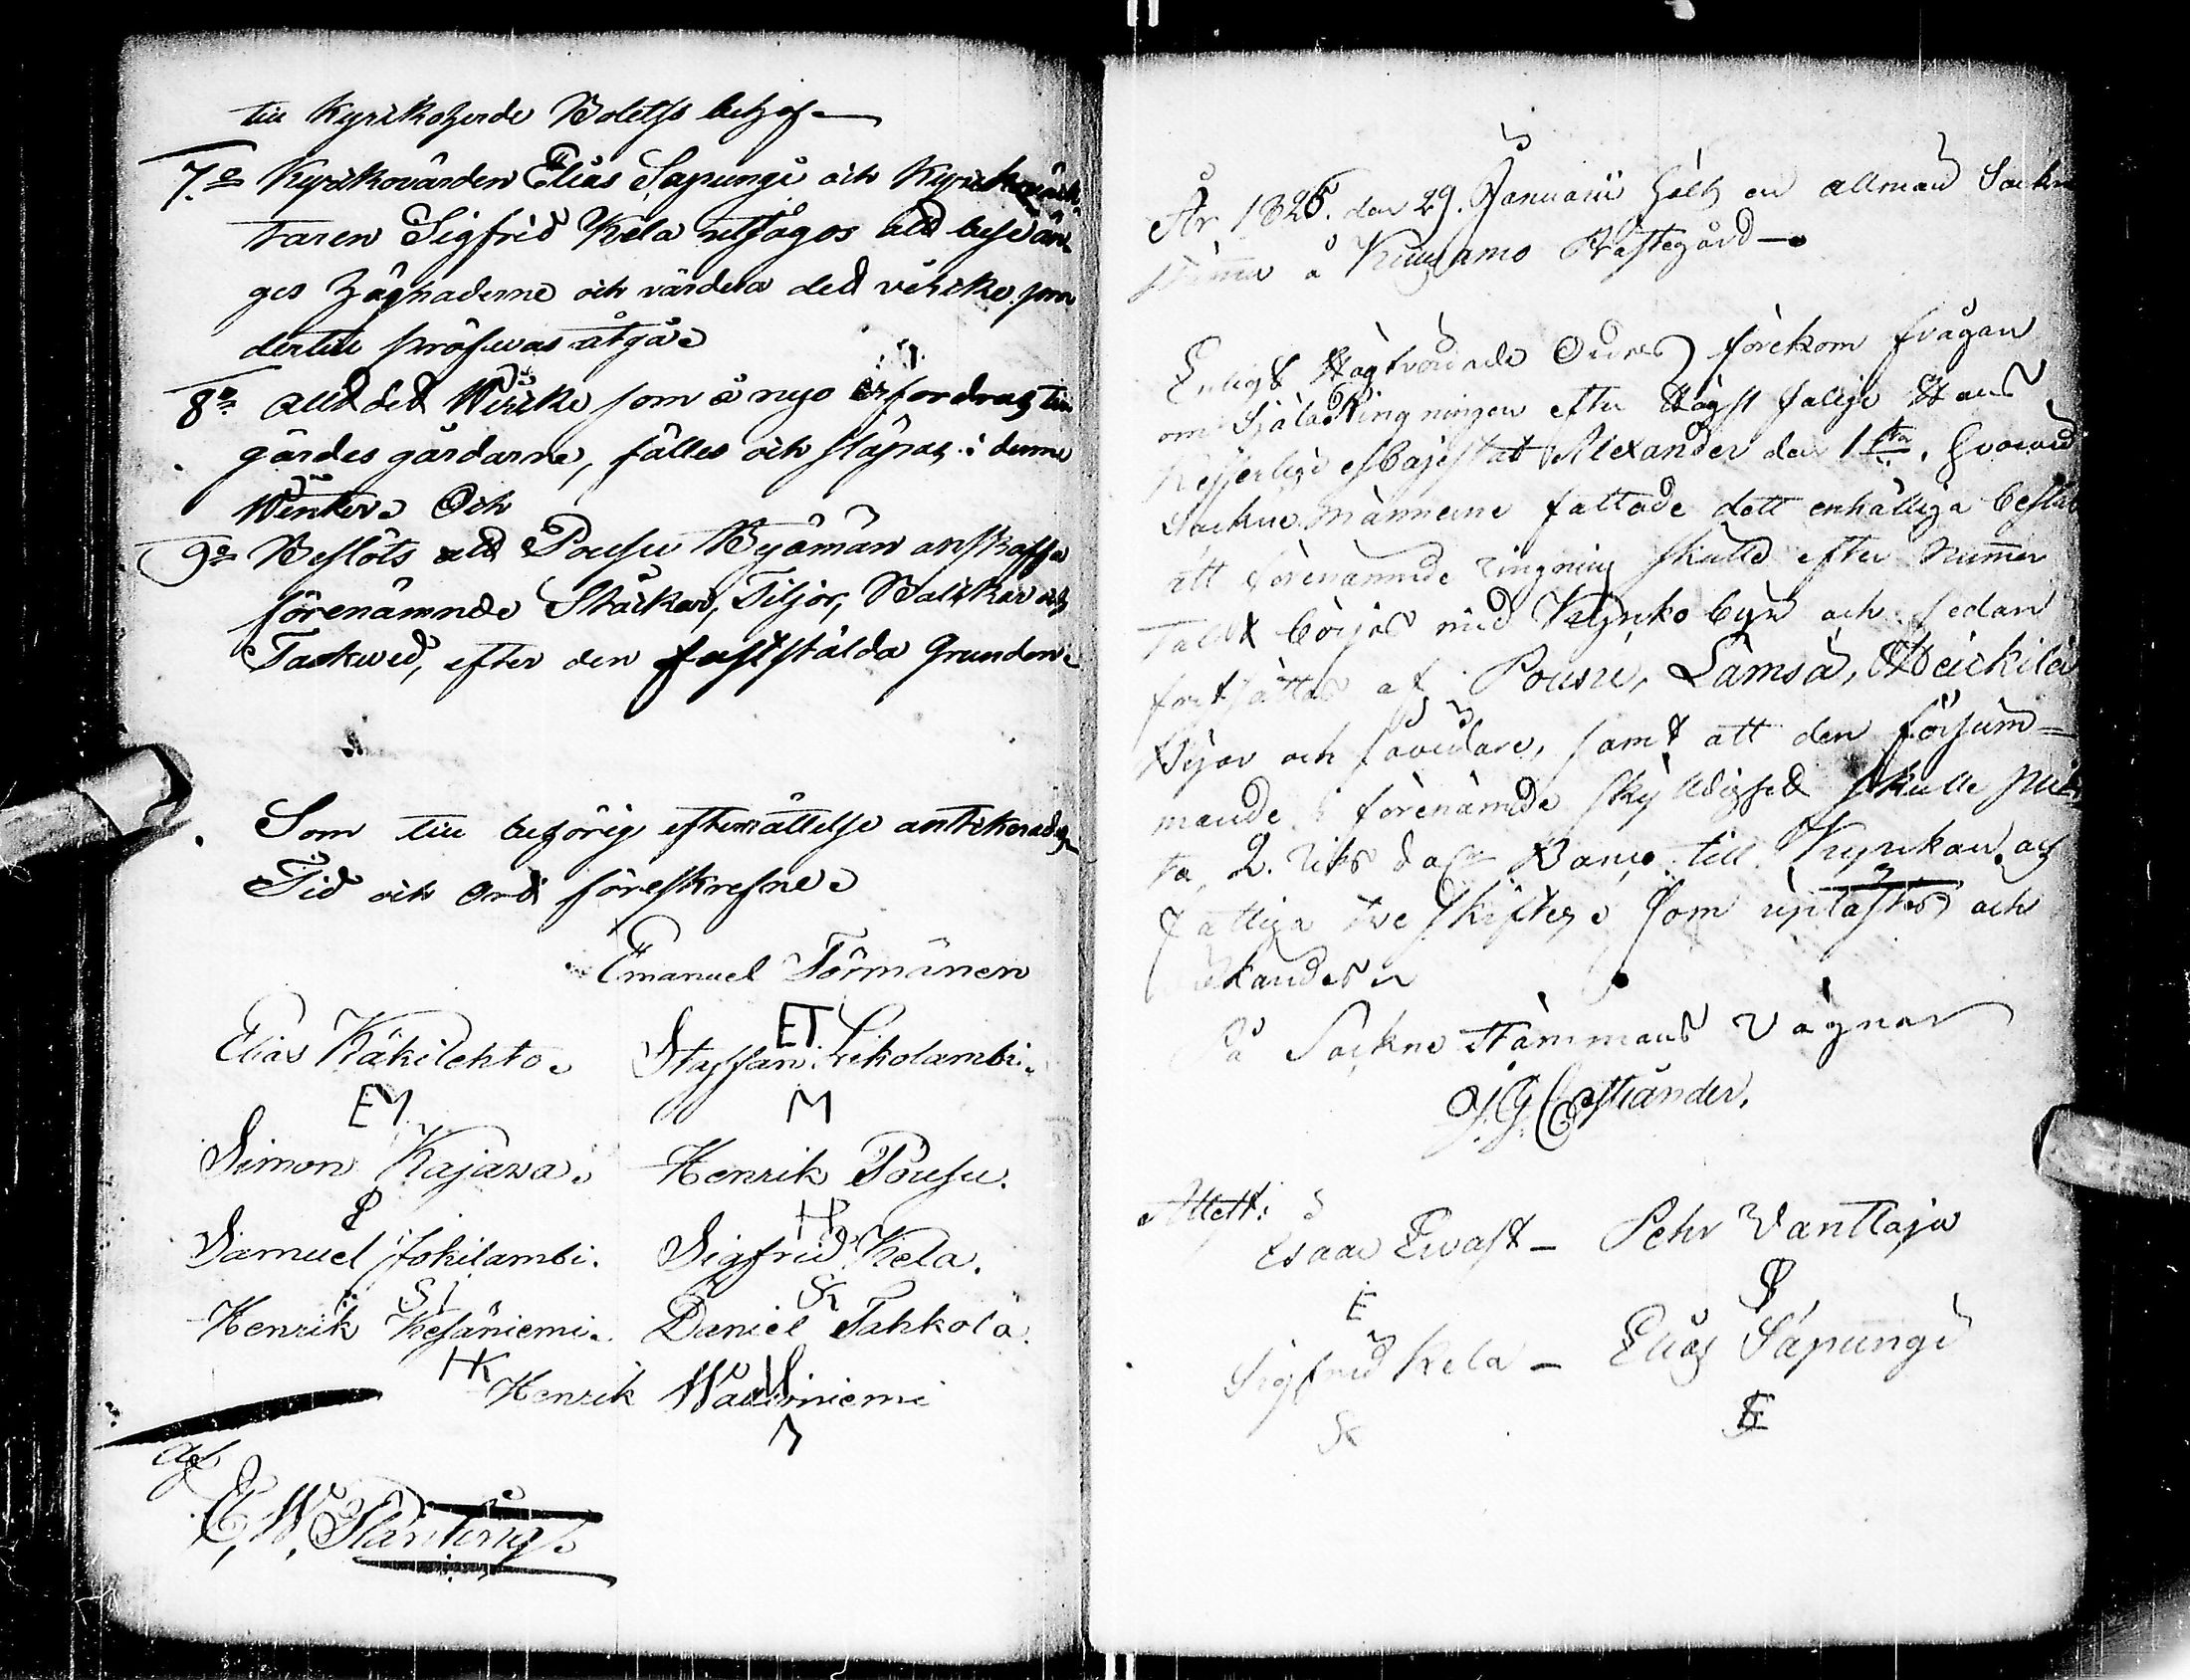 till Kyrkoherde Boletss behof
7:o Kyrkovärden Elias Sapungi och Kyrkoväk-
taren Sigfrid Kela utsågos att bese än-
ges hägnaderne och värdera det virke som
dertill pröfwas åtgå.
8:o Allt det Wirke som å nyo erfordras till
gärdes gårdarne, fälles och släpas i denne
Winter. Och
9:o Beslöts att Pousu Byämän anskaffa
förenämnde Stäckar, Tiljor, Balkar och
Takved, efter den fastställda Grunden.
Som till behörig efterrättelse antecknades
Tid och Ord föreskrefne.
Emanuel Törmänen
ET
Elias Käkilehto. Staffan Sikolambi.
EM M
Simon Kajawa. Henrik Pousu.
S HP
Samuel Jokilambi. Sigfrid Kela.
SI SK
Henrik Kesäniemi. Daniel Tahkola.
HK
Henrik Wäulöniemi
af
E. W. Planting.
År 1826. den 29. Januarii hölts en allmän Sockne
Stämma å Kuusamo Prästegård
Enligt Högtvördnade Ordres förekom frågan
om Själaringningen efter Högst Salige Hans
Kejserlige Majestät Alexander den 1sta. hvarvid
Sockne männerne fattade dett enhälliga beslut
att förenämnde ringning skulle efter Nummer
Tallet börjas med Kyrko byn och sedan
fortsättas af Pousu, Lämsä, Heickilä
Byar och såvidare, samt att den försum-
mande i förenämde skylldighet skulle plik-
ta 2. Riks dalr Banco till Kyrkan och
fattiga tveskiftes. Som uplästes och
erkändes
På Sockne Stämmans vägnar
J. G. Castrander.
Attest:
Esaac Ervast — Pehr Vanttaja
E P
Sigfrid Kela — Elias Sapungi
SK ES